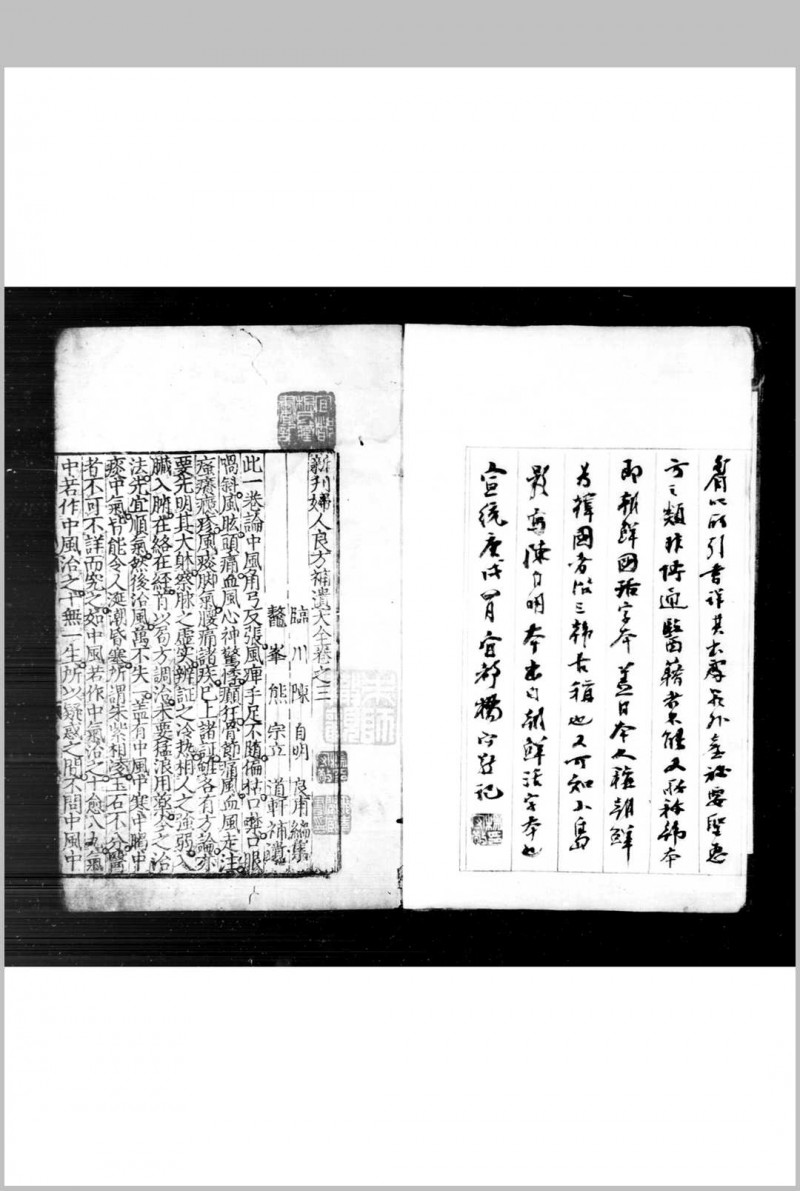 所引書詳其出處若外臺祕要聖惠
方之類非博通醫藉者不能又所称韓本
即朝鮮國活字本蓋日本人稱朝鮮
為韓國者沿三韓古稱也又可知小島
影寫陳自明本出自朝鮮活字本也
宣統庚戌四月宜都楊守敬記
新刊婦人良方補遺大全卷之三
臨川陳自明良甫編集
鰲峯熊宗立道軒補遺
此一巻論中風角弓反張風痺手足不隨偏枯口噤口眼
喎斜風眩頭痛血風心神驚悸癲狂骨節痛風血風走注
瘙癢癮疹風痰脚氣腰痛諸疾已上諸証雖各有方論亦
要先明其大躰察脉之虛実辨証之冷热相人之強弱入
臟入腑在絡在經首以匀方調治不要猛浪用藥多之治
法先宜順氣然後治風萬不失一盖有中風中寒中暍中
痰中氣皆能令人涎潮昏塞所謂朱紫相凌玉石不分醫
者不可不詳而究之如中風若作中氣治之十愈八九氣
中若作中風治之十無一生所以疑惑之間不問中風中